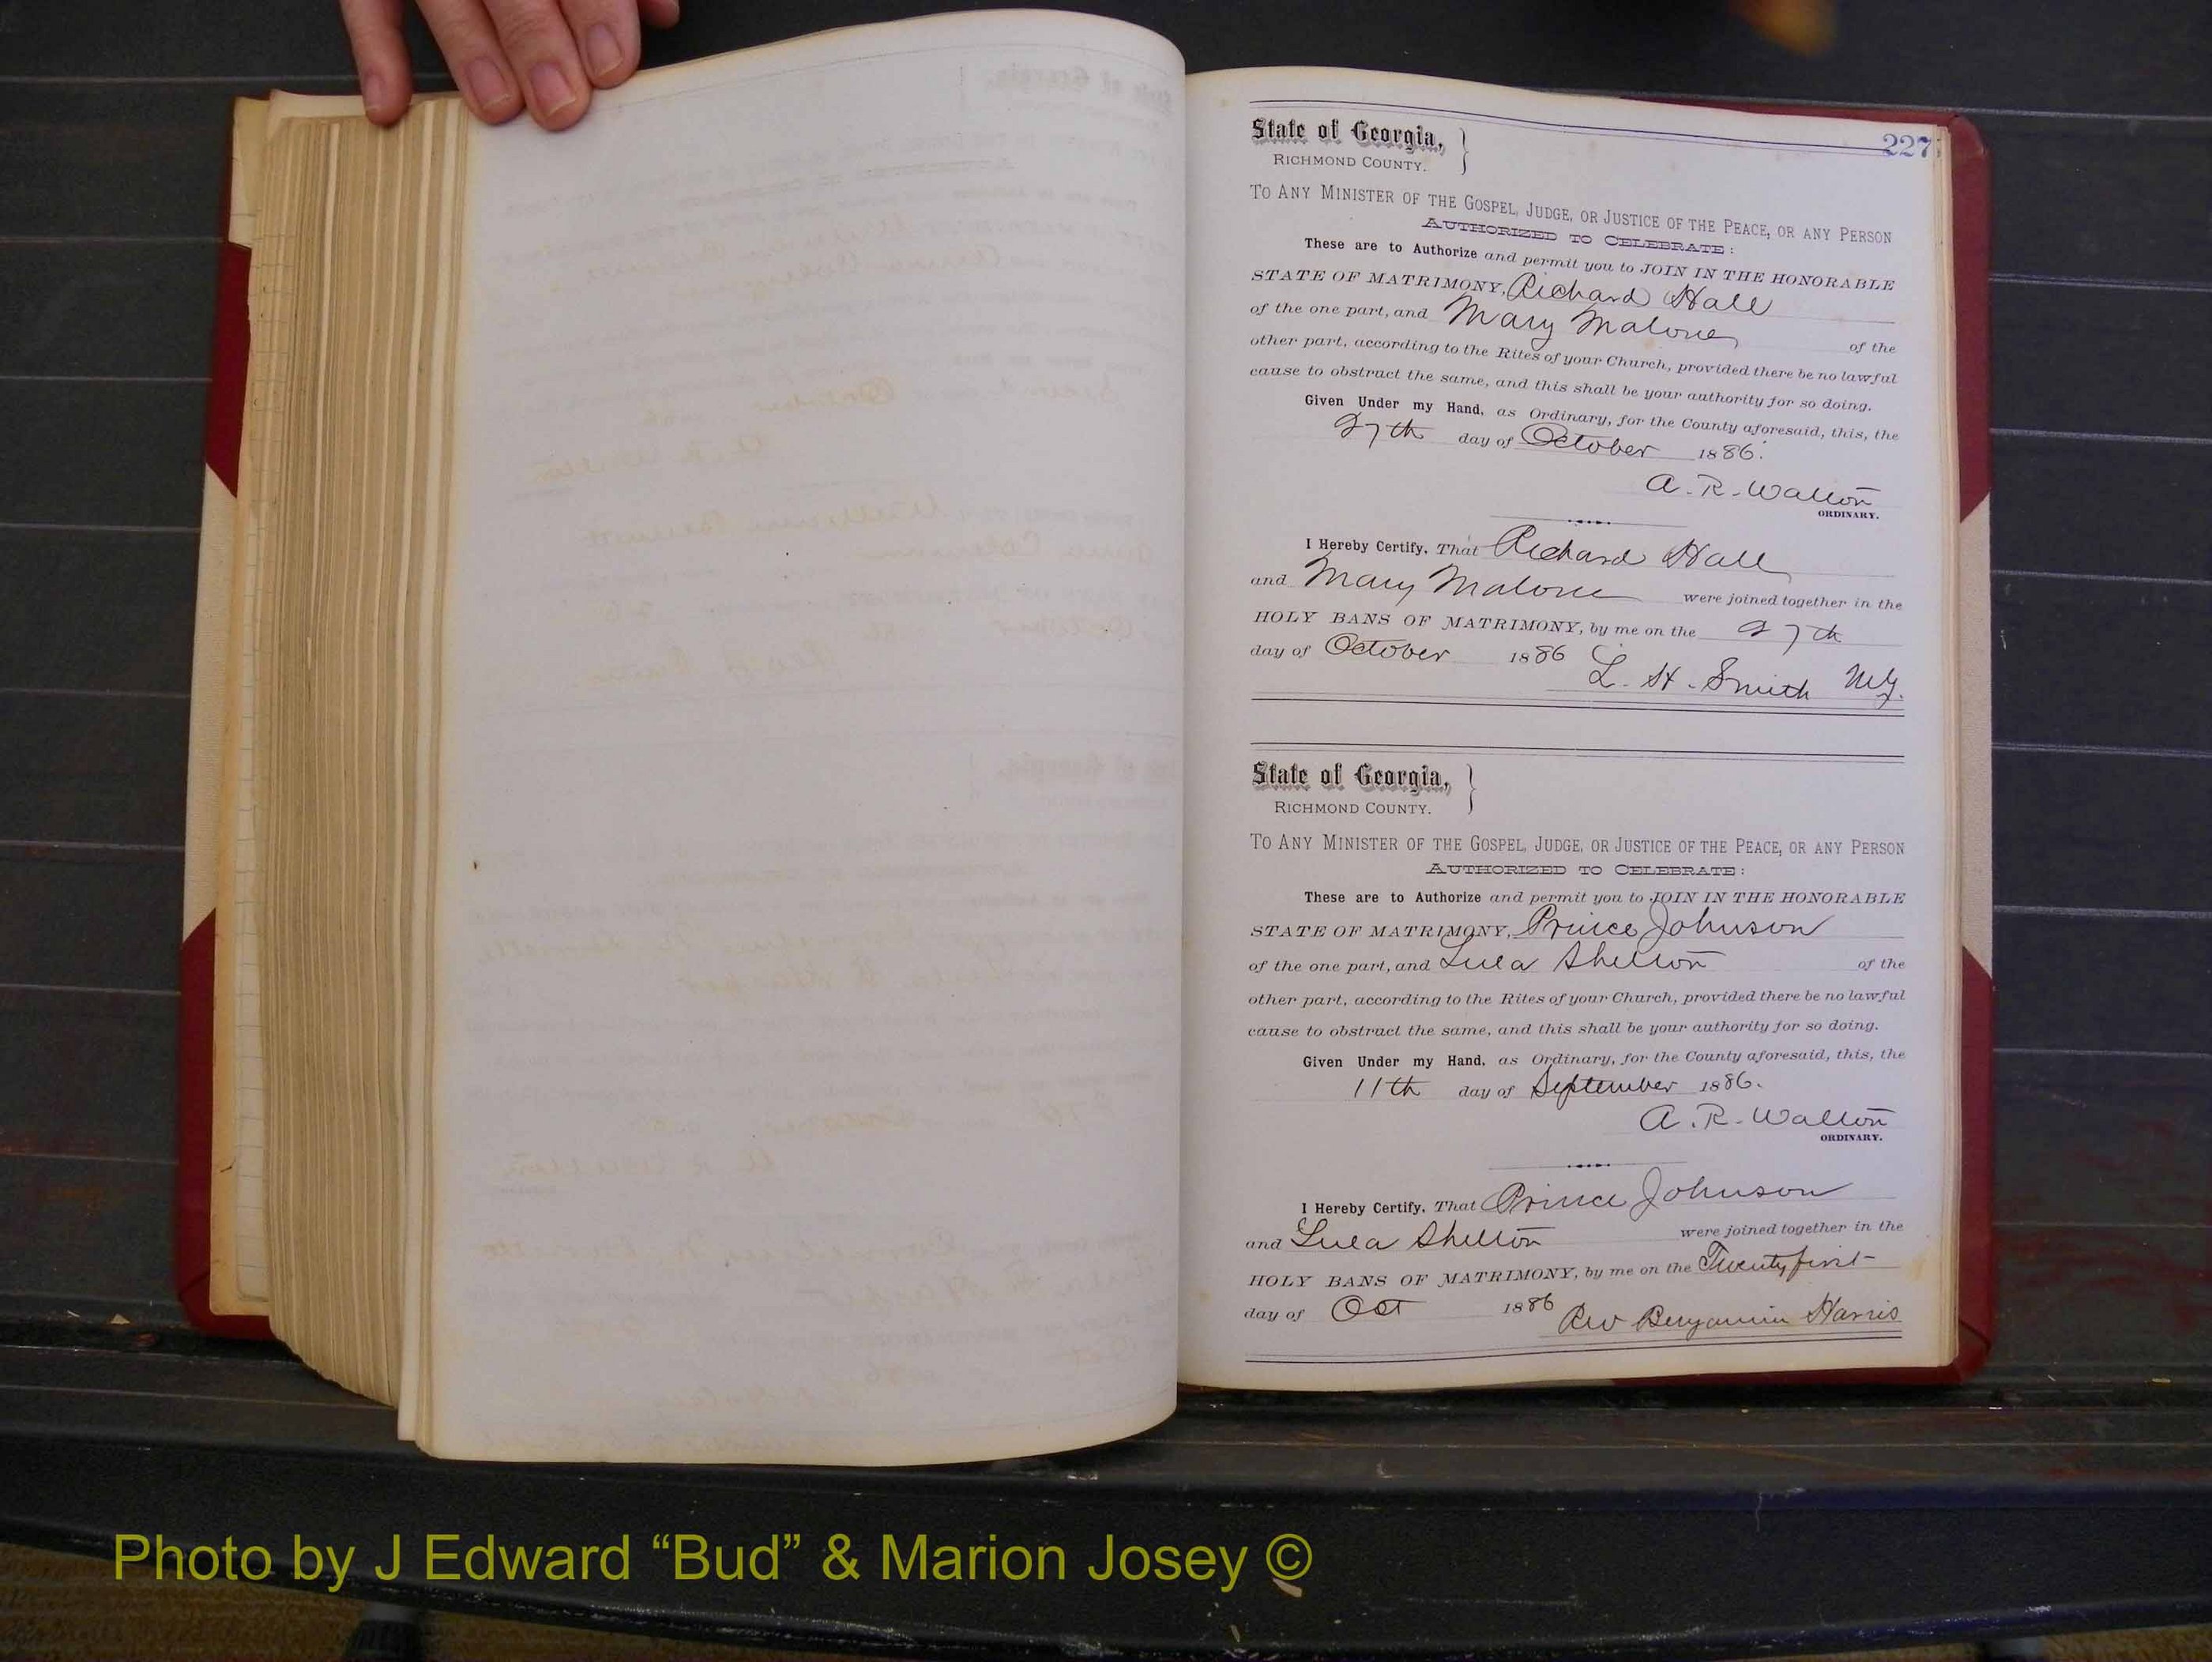 227
State of Georgia,
RICHMOND COUNTY.
TO ANY MINISTER OF THE GOSPEL, JUDGE, OR JUSTICE OF THE PEACE, OR ANY PERSON
AUTHORIZED TO CELEBRATE:
These are to Authorize and permit you to JOIN IN THE HONORABLE
STATE OF MATRIMONY, Richard Hall
of the one part, and Mary Malone of the
other part, according to the Rites of your Church, provided there be no lawful
cause to obstruct the same, and this shall be your authority for so doing.
Given Under my Hand, as Ordinary, for the County aforesaid, this, the
27th day of October 1886.
A. R. Walton
ORDINARY.
I Hereby Certify, That Richard Hall
and Mary Malone were joined together in the
HOLY BANS OF MATRIMONY, by me on the 27th
day of October 1886
L. H. Smith M.G.
State of Georgia,
RICHMOND COUNTY.
TO ANY MINISTER OF THE GOSPEL, JUDGE, OR JUSTICE OF THE PEACE, OR ANY PERSON
AUTHORIZED TO CELEBRATE:
These are to Authorize and permit you to JOIN IN THE HONORABLE
STATE OF MATRIMONY, Prince Johnson
of the one part, and Lula Shelton of the
other part, according to the Rites of your Church, provided there be no lawful
cause to obstruct the same, and this shall be your authority for so doing.
Given Under my Hand, as Ordinary, for the County aforesaid, this, the
11th day of September 1886.
A. R. Walton
ORDINARY.
I Hereby Certify, That Prince Johnson
and Lula Shelton were joined together in the
HOLY BANS OF MATRIMONY, by me on the Twenty first
day of Oct 1886
Rev Benjamin Harris
Photo by J Edward “Bud” & Marion Josey ©